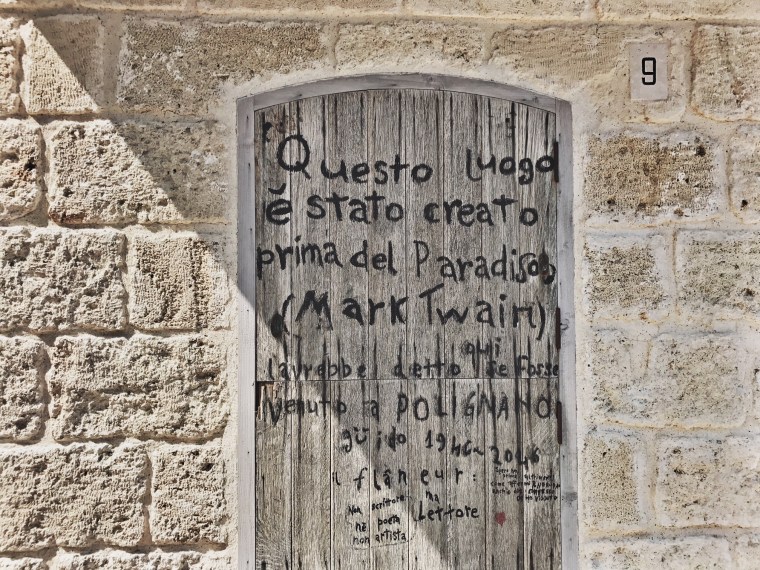 9
Questo luogo
è stato creato
prima del Paradiso
(Mark Twain)
lavrebbe detto qui se Fosse
Venuto a POLIGNANO
güido 1946-2046
il flâneur:
Non scrittore ma
nè poeta Lettore
non artista